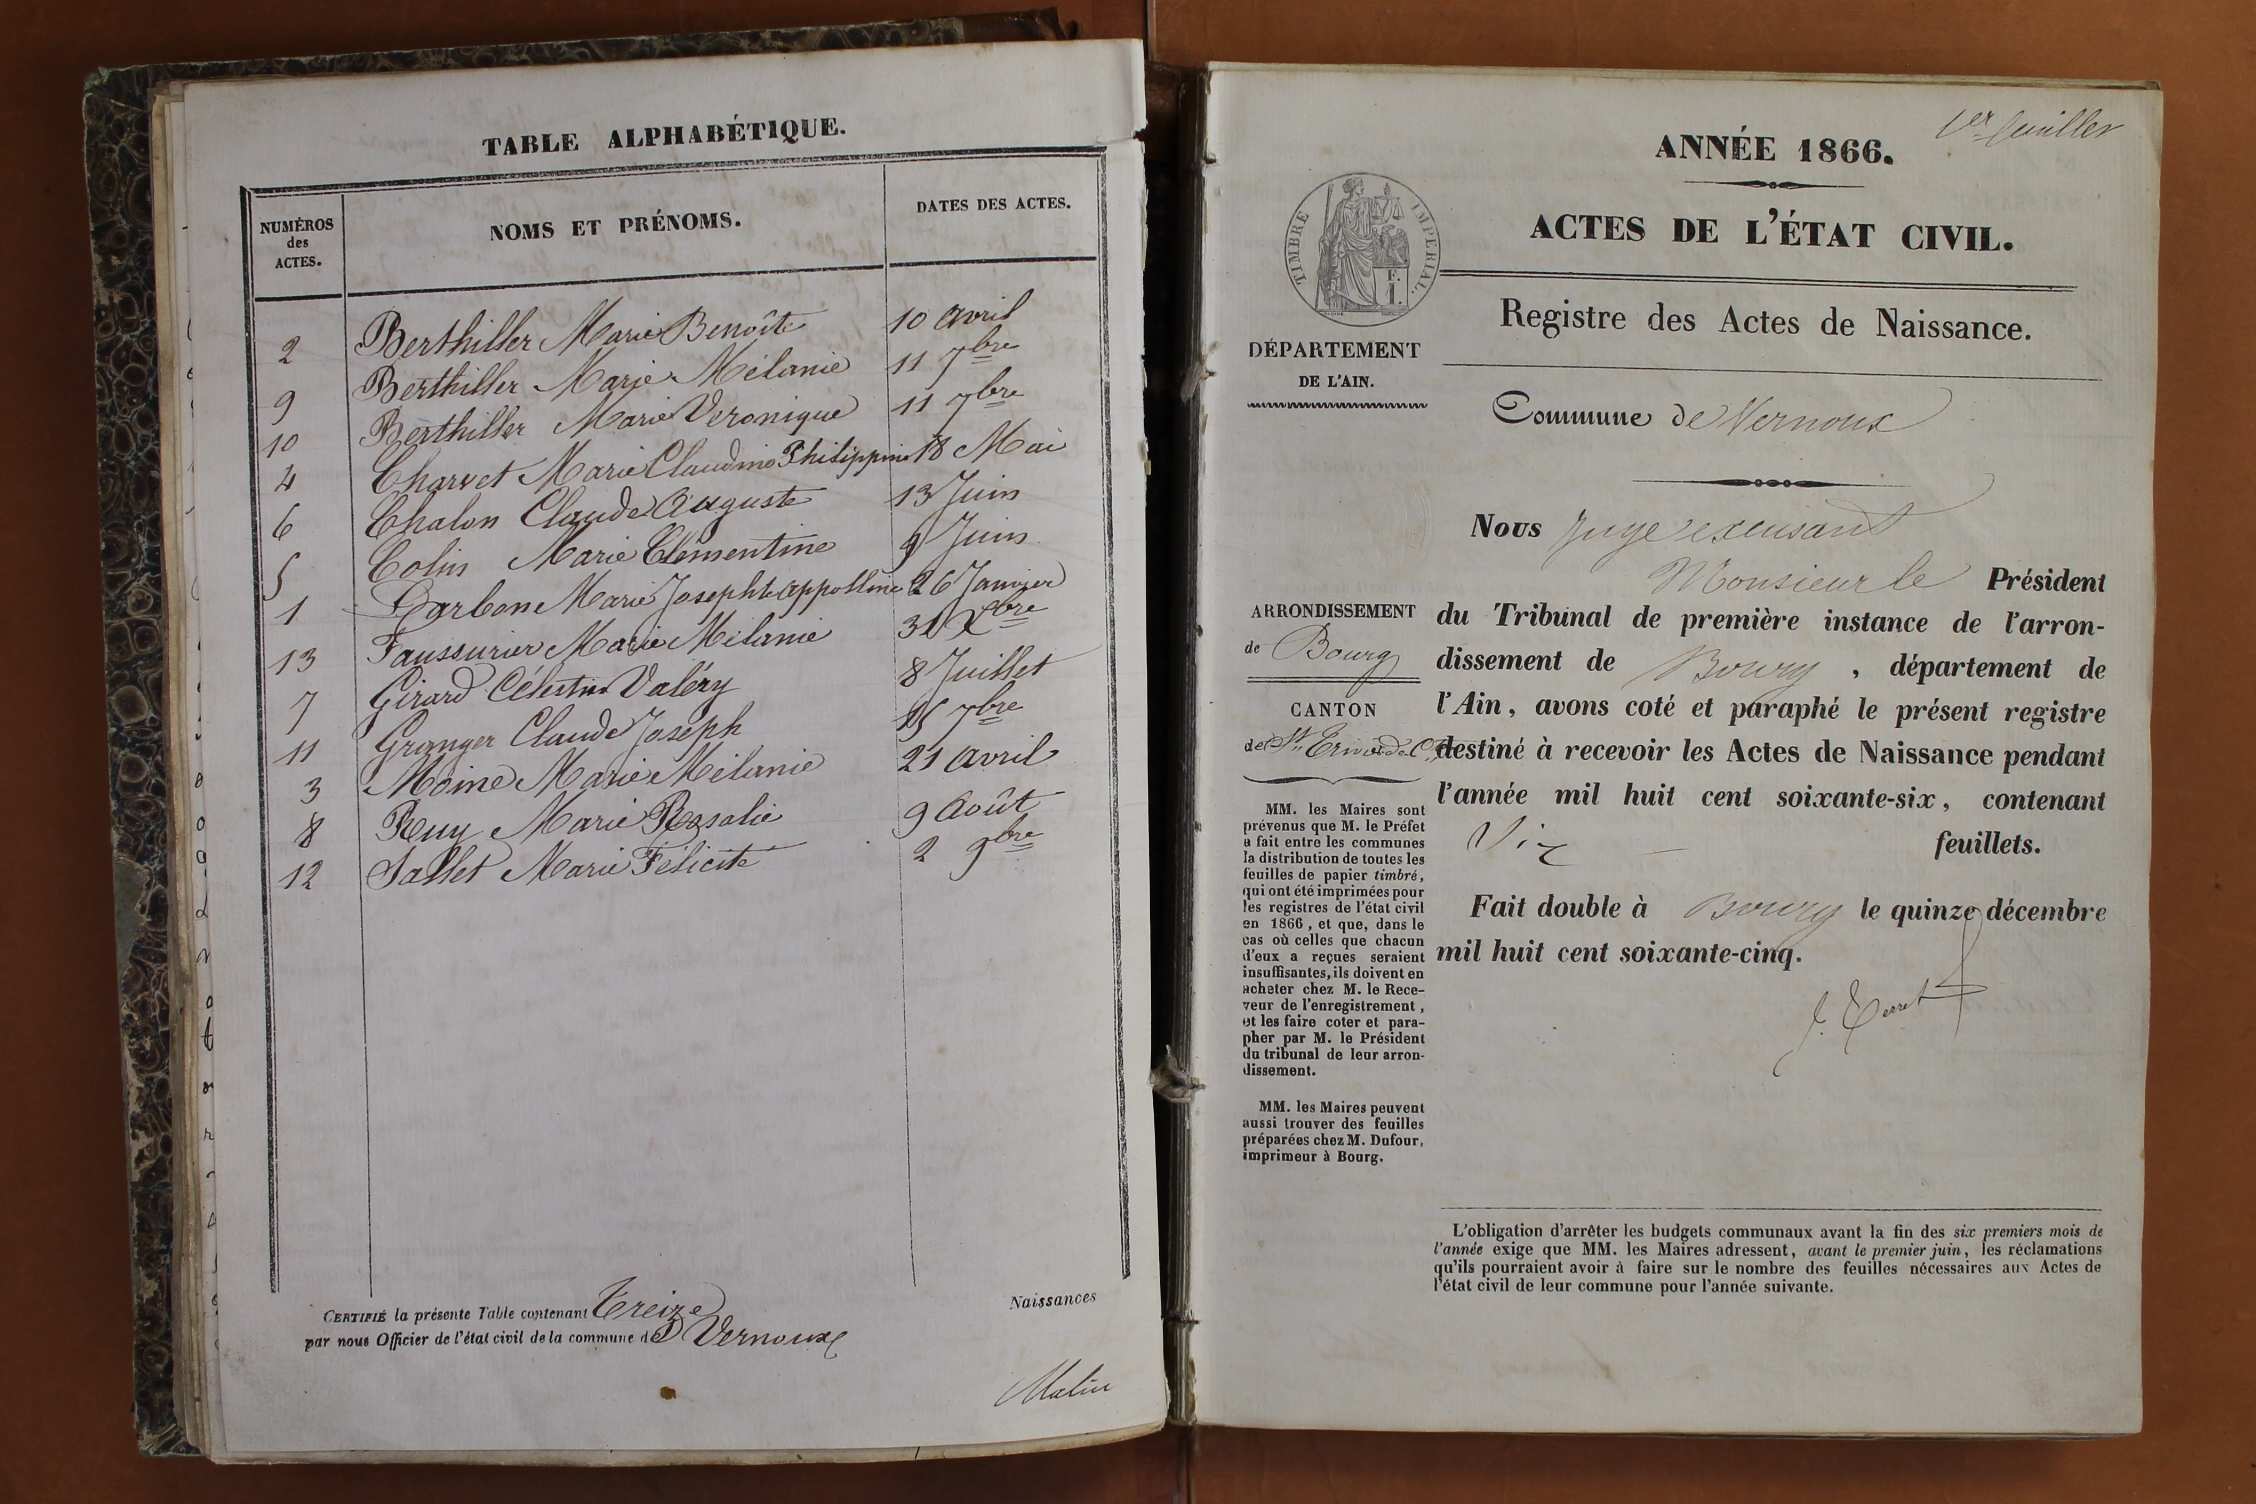 TABLE ALPHABÉTIQUE.
NUMÉROS des ACTES.
NOMS ET PRÉNOMS.
DATES DES ACTES.
2 Berthiller Marie Benoîte 10 avril
9 Berthiller Marie Mélanie 11 7bre
10 Berthiller Marie Veronique 11 7bre
4 Charvet Marie Claudine Philippine 18 Mai
6 Chalon Claude Auguste 13 Juin
5 Colin Marie Clémentine 9 Juin
1 Darbon Marie Josephte appolline 26 Janvier
13 Faussurier Marie Mélanie 31 Xbre
7 Girard Célestin Valéry 8 Juillet
11 Granger Claude Joseph 15 7bre
3 Moine Marie Mélanie 21 avril
8 Ruy Marie Rosalie 9 Août
12 Sallet Marie Félicité 2 9bre
CERTIFIÉ la présente Table contenant Treize Naissances
par nous Officier de l'état civil de la commune de Vernoux
1er feuillet
ANNÉE 1866.
ACTES DE L'ÉTAT CIVIL.
TIMBRE IMPÉRIAL.
F.
1.
Registre des Actes de Naissance.
DÉPARTEMENT
DE L'AIN.
Commune de Vernoux
ARRONDISSEMENT
de Bourg
CANTON
de St
MM. les Maires sont
prévenus que M. le Préfet
a fait entre les communes
la distribution de toutes les
feuilles de papier timbré,
qui ont été imprimées pour
les registres de l'état civil
en 1866, et que, dans le
cas où celles que chacun
d'eux a reçues seraient
insuffisantes, ils doivent en
acheter chez M. le Rece-
veur de l'enregistrement,
et les faire coter et para-
pher par M. le Président
du tribunal de leur arron-
dissement.
MM. les Maires peuvent
aussi trouver des feuilles
préparées chez M. Dufour,
imprimeur à Bourg.
Nous Juge
Monsieur le Président
du Tribunal de première instance de l'arron-
dissement de Bourg, département de
l'Ain, avons coté et paraphé le présent registre
destiné à recevoir les Actes de Naissance pendant
l'année mil huit cent soixante-six, contenant
feuillets.
Fait double à Bourg le quinze décembre
mil huit cent soixante-cinq.
L'obligation d'arrêter les budgets communaux avant la fin des six premiers mois de
l'année exige que MM. les Maires adressent, avant le premier juin, les réclamations
qu'ils pourraient avoir à faire sur le nombre des feuilles nécessaires aux Actes de
l'état civil de leur commune pour l'année suivante.